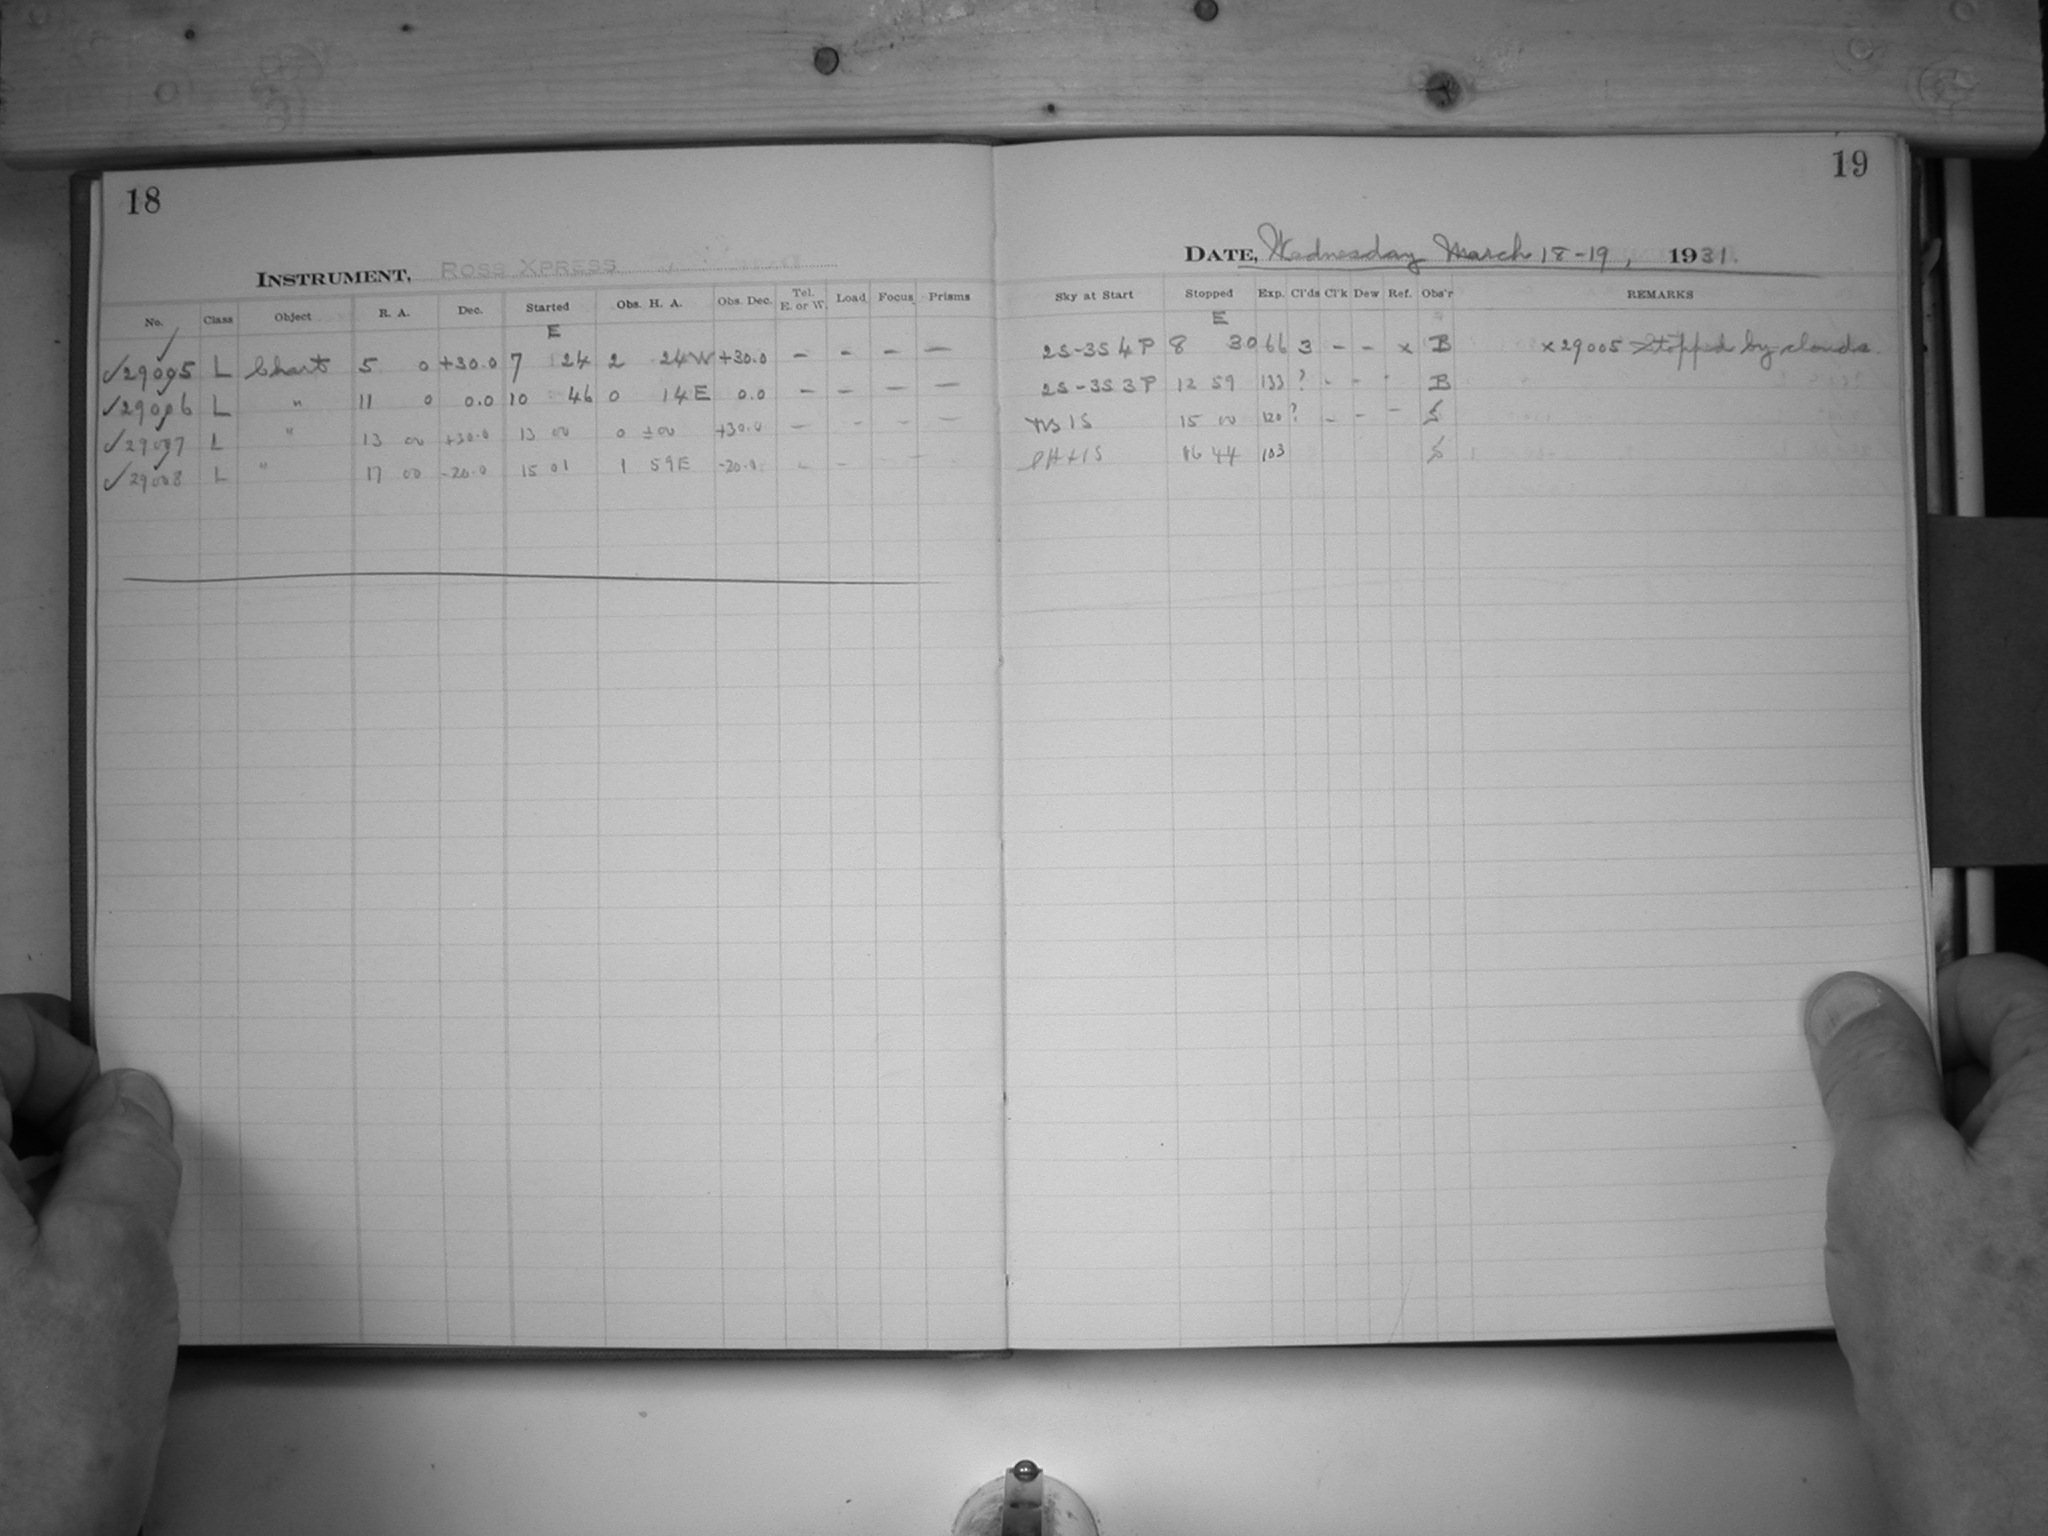 18
INSTRUMENT, ROSS XPRESS
No. Class Object R. A. Dec. Started Obs. H. A. Obs. Dec. Tel. E. or W. Load Focus Prisms
E
✓29005 L Chart 5 0 +30.0 7 24 2 24W +30.0 - - - -
✓29006 L " 11 0 0.0 10 46 0 14E 0.0 - -
✓29007 L " 13 00 +30.0 13 00 0 ±00 +30.0 - - - -
✓29008 L " 17 00 -20.0 15 01 1 59E -20.0 - -
19
DATE, Wednesday March 18-19, 1931.
Sky at Start Stopped Exp. Cl'ds Cl'k Dew Ref. Obs'r REMARKS
E
2S-3S 4P 8 30 66 3 - - x B x29005 Stopped by clouds
2S-3S 3P 12 59 133 ? - - - B
1S 15 00 120 ? - - - S
1S 16 44 103 S